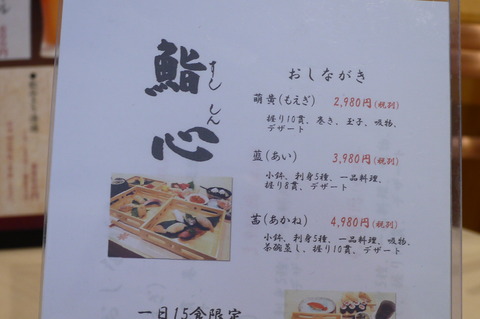 鮨心
すし しん
おしながき
萌黄(もえぎ) 2,980円(税別)
握り10貫、巻き、玉子、吸物、
デザート
藍(あい) 3,980円(税別)
小鉢、刺身5種、一品料理、
握り8貫、デザート
茜(あかね) 4,980円(税別)
小鉢、刺身5種、一品料理、吸物、
茶碗蒸し、握り10貫、デザート
一日15食限定